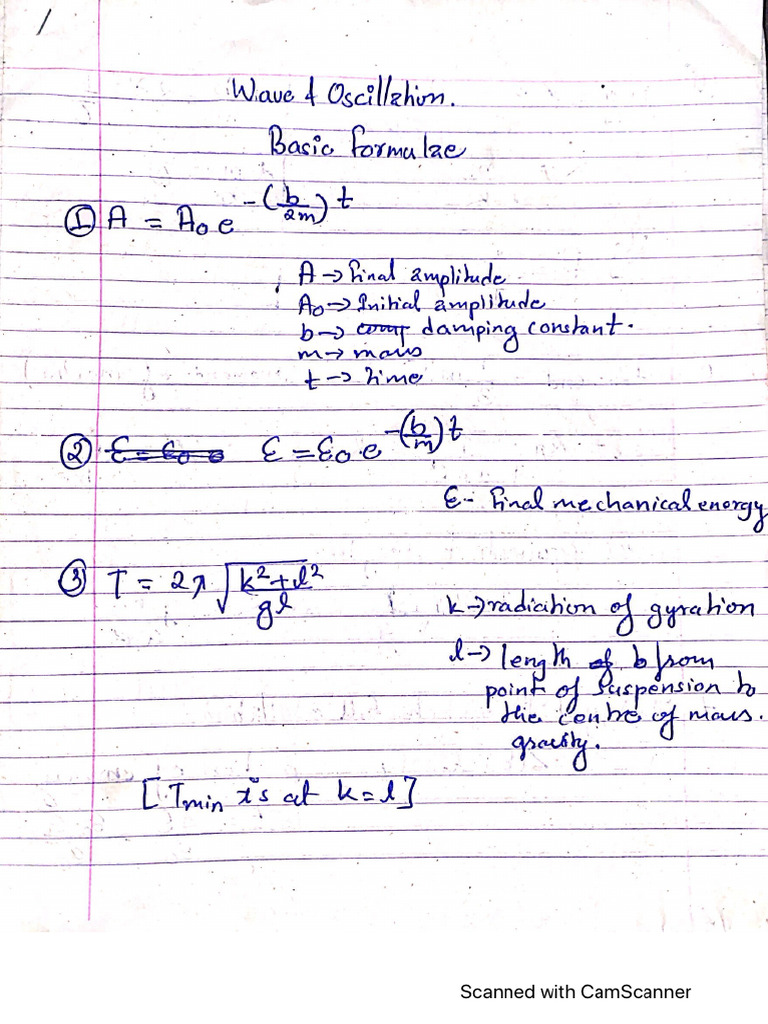 /
Wave & Oscillation.
Basic formulae
① A = A₀ e^-(b/2m) t
A → final amplitude
A₀ → Initial amplitude
b → damping constant.
m → mass
t → time
② E = E₀ e E = E₀ e^-(b/m) t
E - final mechanical energy
③ T = 2π √(k²+l²/gl)
k → radiation of gyration
l → length of b from
point of suspension to
the centre of mass.
gravity.
[Tmin is at k = l]
Scanned with CamScanner